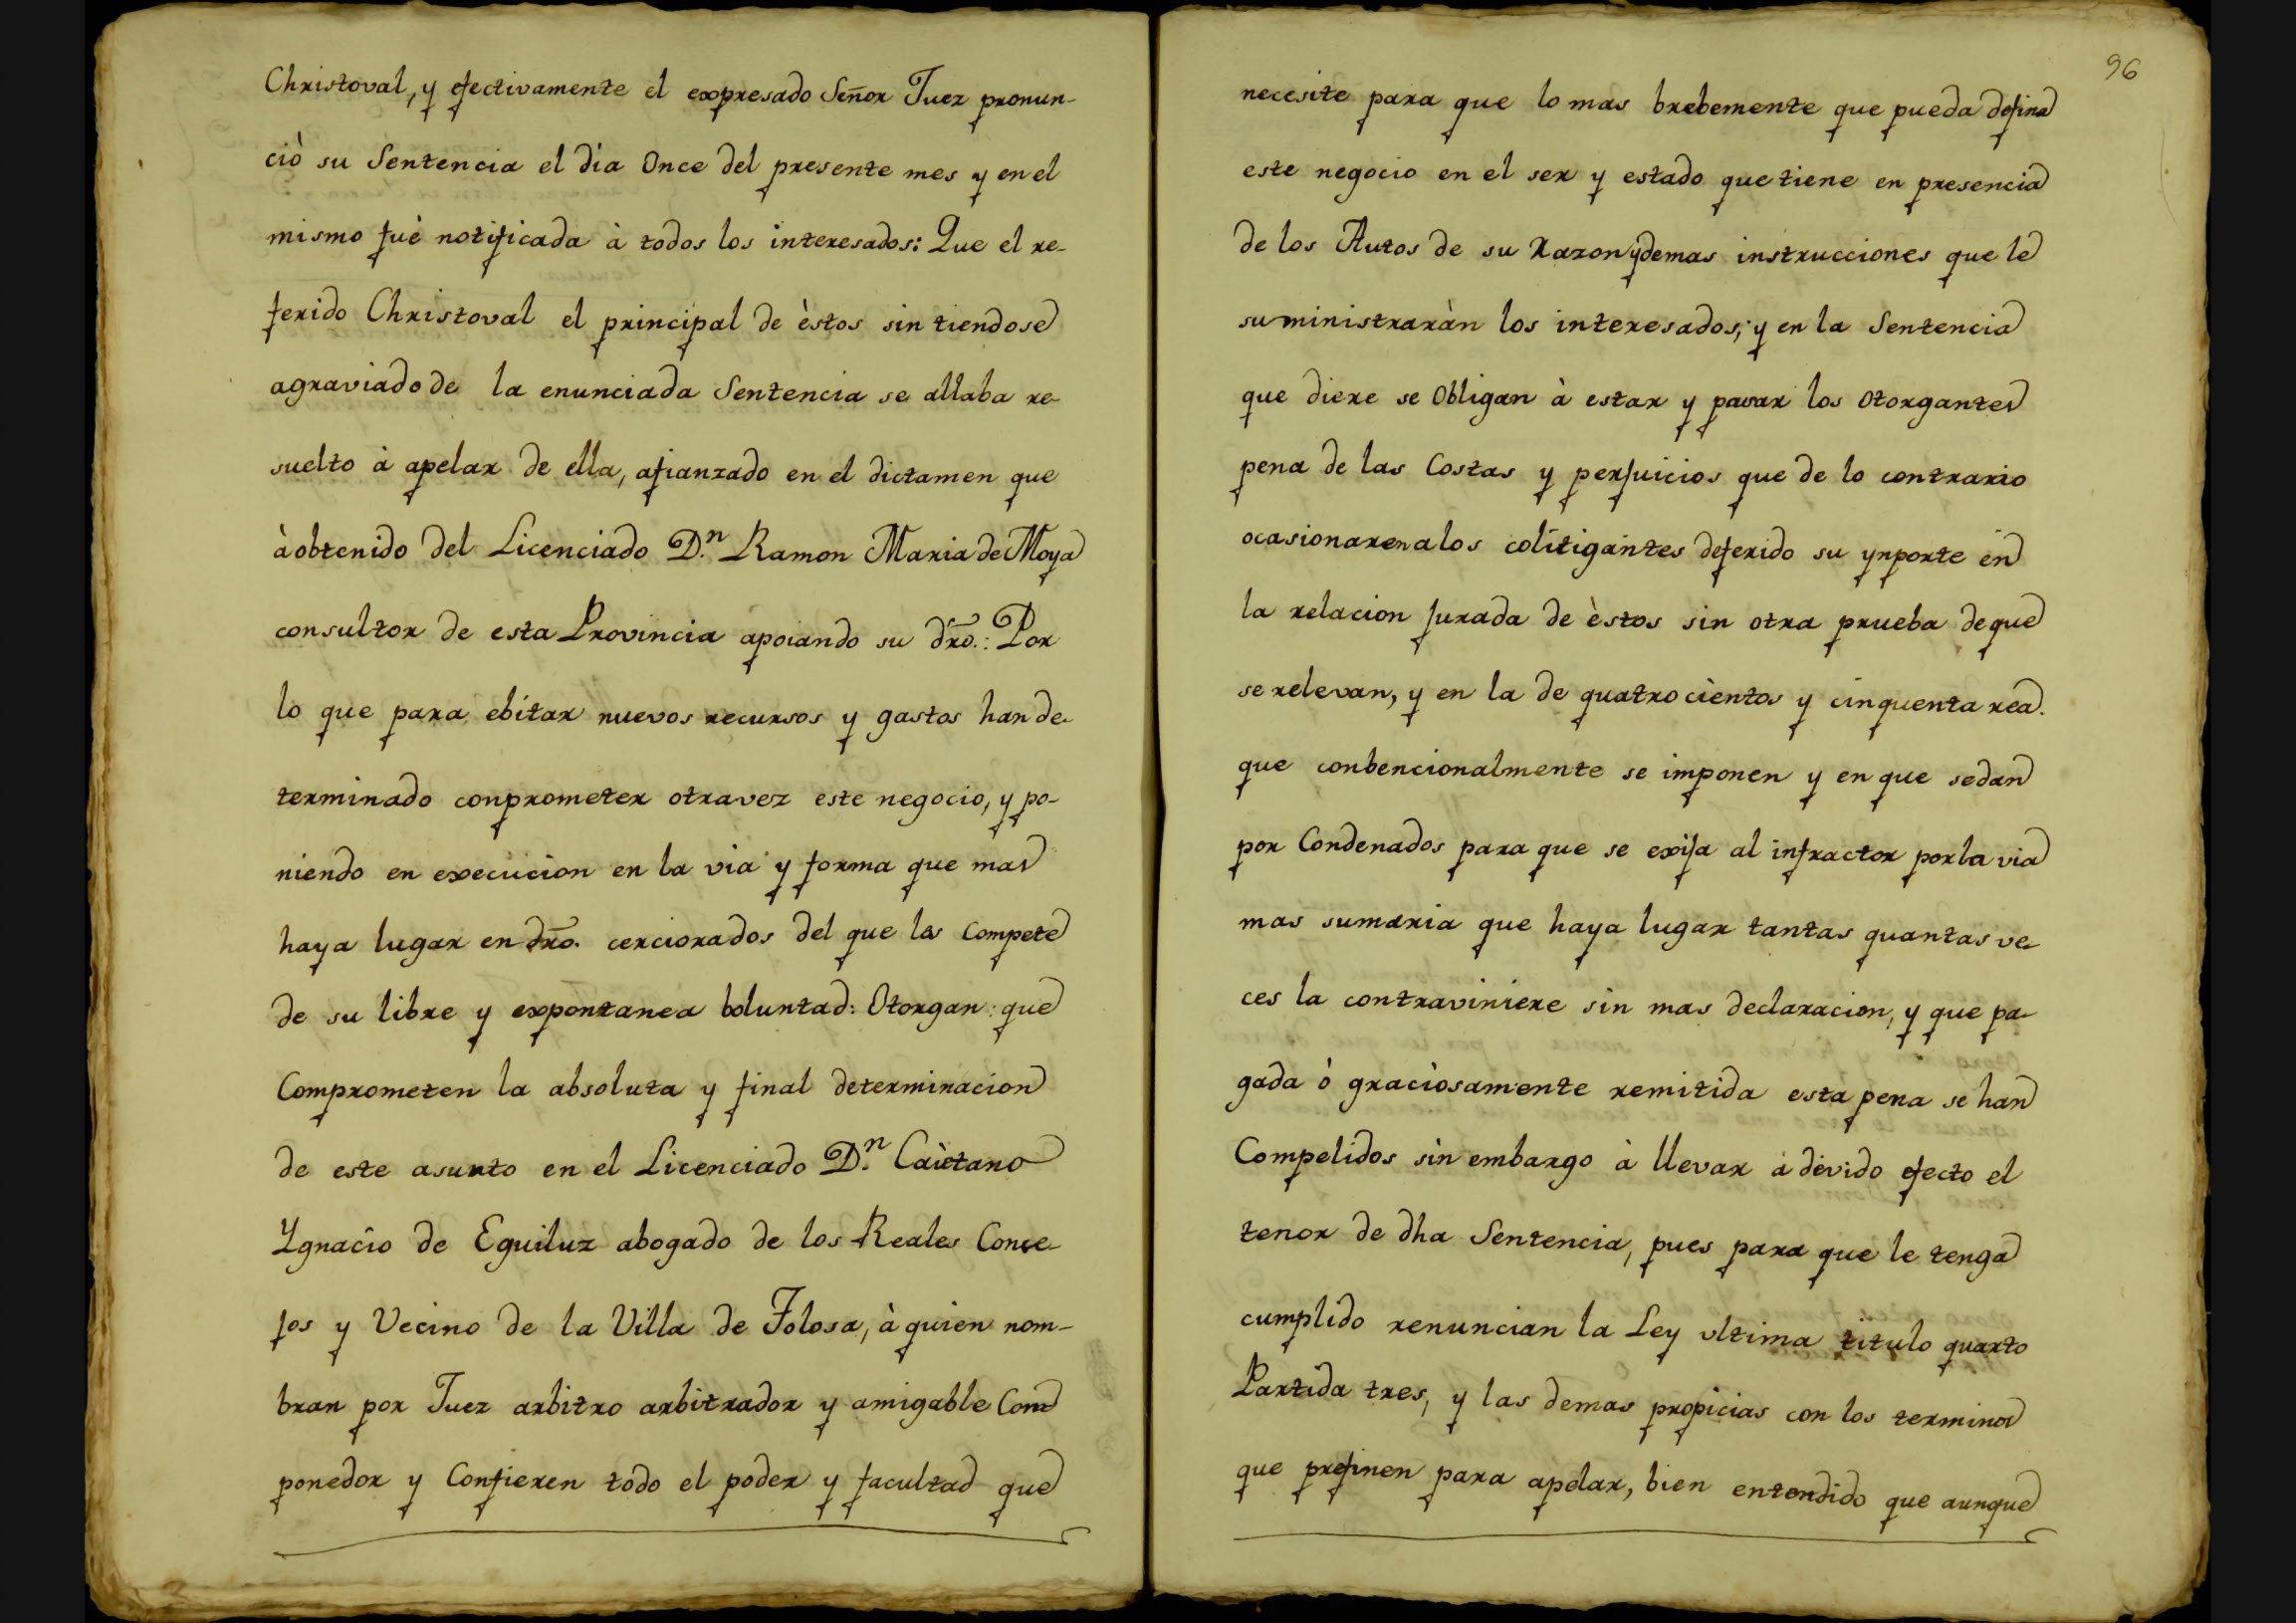 Christoval, y efectivamente el expresado Señor Juez pronun-
ciò su Sentencia el dia Once del presente mes y en el
mismo fuè notificada à todos los interesados: Que el re-
ferido Christoval el principal de èstos sin tiendose
agraviado de la enunciada Sentencia se allaba re-
suelto à apelar de ella, afianzado en el dictamen que
à obtenido del Licenciado D.n Ramon Maria de Moya
consultor de esta Provincia apoiando su dro.: Por
lo que para ebitar nuevos recursos y gastos han de-
terminado conprometer otra vez este negocio, y po-
niendo en execucion en la via y forma que mas
haya lugar en dro. cerciorados del que les compete
de su libre y expontanea boluntad: Otorgan: que
Comprometen la absoluta y final determinacion
de este asunto en el Licenciado D.n Caietano
Ygnacio de Eguiluz abogado de los Reales Conse-
jos y Vecino de la Villa de Tolosa, à quien nom-
bran por Juez arbitro arbitrador y amigable Com-
ponedor y Confieren todo el poder y facultad que
96
necesite para que lo mas brebemente que pueda defina
este negocio en el ser y estado que tiene en presencia
de los Autos de su Razon y demas instrucciones que le
suministraràn los interesados; y en la Sentencia
que diere se Obligan à estar y pasar los Otorgantes
pena de las Costas y perjuicios que de lo contrario
ocasionaren a los colitigantes deferido su ynporte en
la relacion jurada de èstos sin otra prueba de que
se relevan, y en la de quatrocientos y cinquenta rea.
que conbencionalmente se imponen y en que se dan
por Condenados para que se exija al infractor por la via
mas sumaria que haya lugar tantas quantas ve-
ces la contraviniere sin mas declaracion, y que pa-
gada ò graciosamente remitida esta pena se han
Compelidos sin embargo à llevar à devido efecto el
tenor de dha Sentencia, pues para que le tenga
cumplido renuncian la Ley ultima titulo quarto
Partida tres, y las demas propicias con los terminos
que prefinen para apelar, bien entendido que aunque